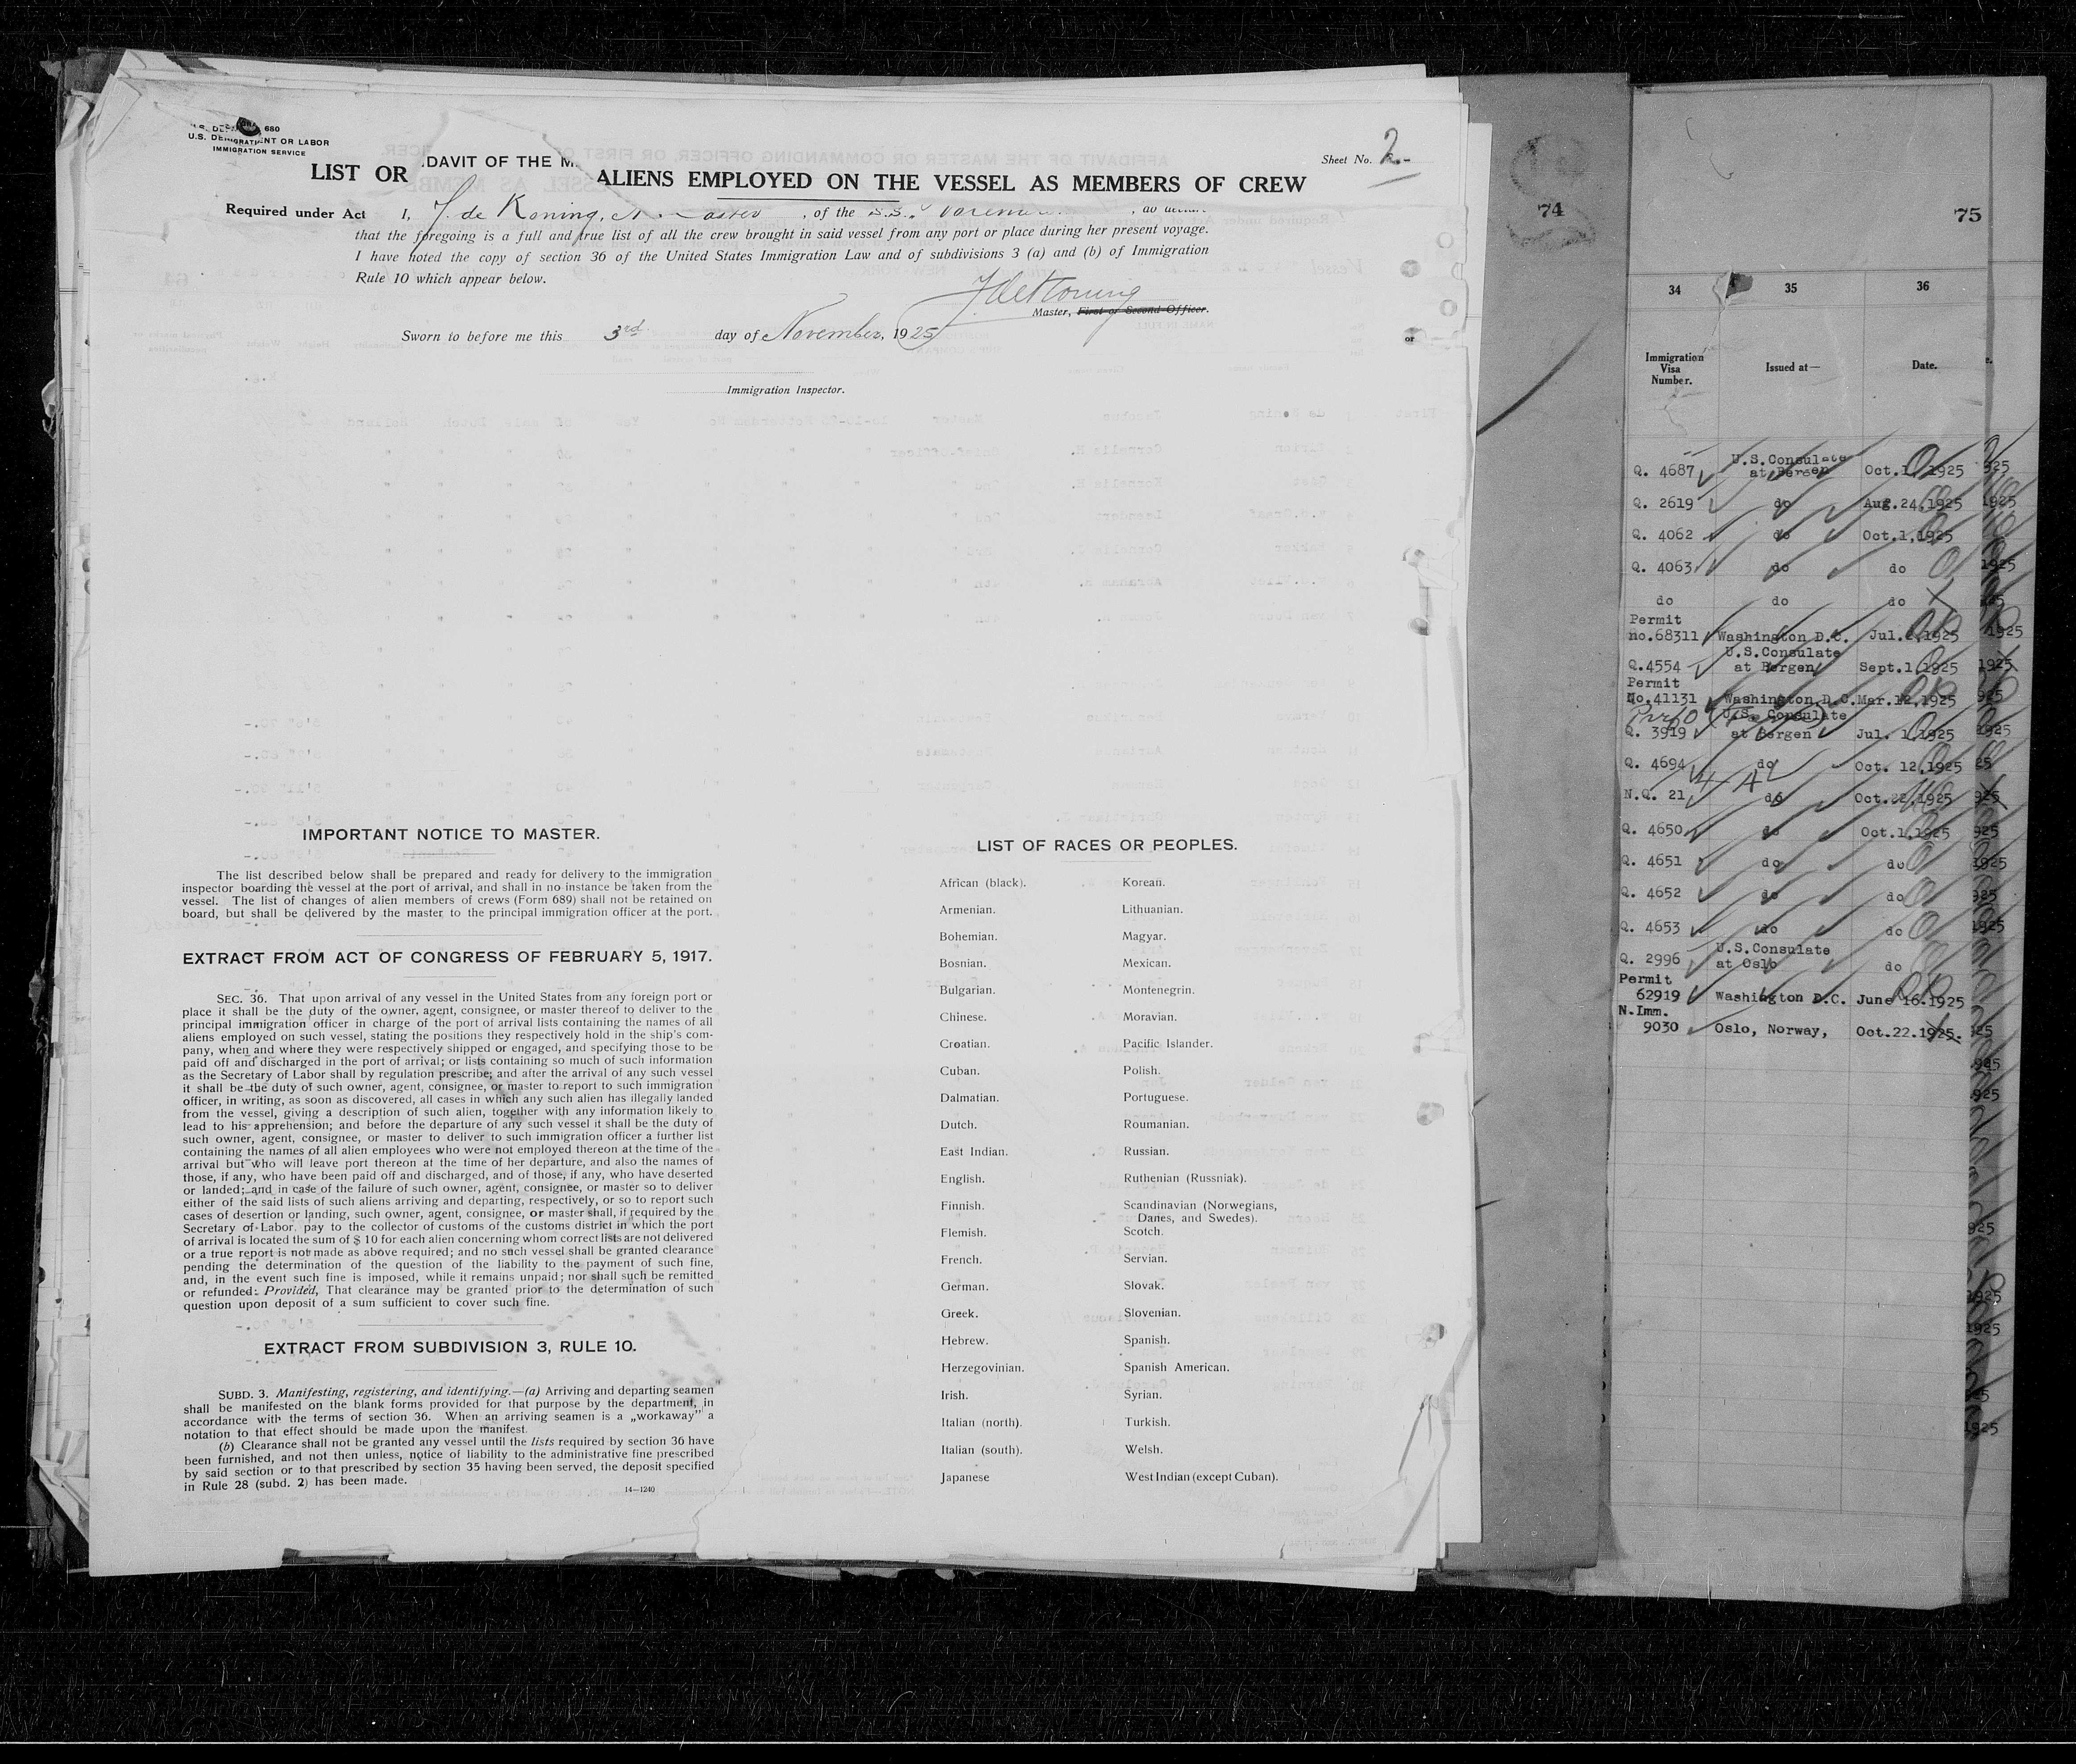 680
U.S. DEPARTMENT OR LABOR
IMMIGRATION SERVICE
Sheet No. 2-
DAVIT OF THE M
LIST OR ALIENS EMPLOYED ON THE VESSEL AS MEMBERS OF CREW
Required under Act
I, J. de Koning, of the S.S.
that the foregoing is a full and true list of all the crew brought in said vessel from any port or place during her present voyage.
I have noted the copy of section 36 of the United States Immigration Law and of subdivisions 3 (a) and (b) of Immigration
Rule 10 which appear below.
J de Koning
Master, First or Second Officer.
Sworn to before me this 3rd day of November, 1925
Immigration Inspector.
IMPORTANT NOTICE TO MASTER.
The list described below shall be prepared and ready for delivery to the immigration
inspector boarding the vessel at the port of arrival, and shall in no instance be taken from the
vessel. The list of changes of alien members of crews (Form 689) shall not be retained on
board, but shall be delivered by the master to the principal immigration officer at the port.
EXTRACT FROM ACT OF CONGRESS OF FEBRUARY 5, 1917.
SEC. 36. That upon arrival of any vessel in the United States from any foreign port or
place it shall be the duty of the owner, agent, consignee, or master thereof to deliver to the
principal immigration officer in charge of the port of arrival lists containing the names of all
aliens employed on such vessel, stating the positions they respectively hold in the ship's com-
pany, when and where they were respectively shipped or engaged, and specifying those to be
paid off and discharged in the port of arrival; or lists containing so much of such information
as the Secretary of Labor shall by regulation prescribe; and after the arrival of any such vessel
it shall be the duty of such owner, agent, consignee, or master to report to such immigration
officer, in writing, as soon as discovered, all cases in which any such alien has illegally landed
from the vessel, giving a description of such alien, together with any information likely to
lead to his apprehension; and before the departure of any such vessel it shall be the duty of
such owner, agent, consignee, or master to deliver to such immigration officer a further list
containing the names of all alien employees who were not employed thereon at the time of the
arrival but who will leave port thereon at the time of her departure, and also the names of
those, if any, who have been paid off and discharged, and of those, if any, who have deserted
or landed; and in case of the failure of such owner, agent, consignee, or master so to deliver
either of the said lists of such aliens arriving and departing, respectively, or so to report such
cases of desertion or landing, such owner, agent, consignee, or master shall, if required by the
Secretary of Labor, pay to the collector of customs of the customs district in which the port
of arrival is located the sum of $ 10 for each alien concerning whom correct lists are not delivered
or a true report is not made as above required; and no such vessel shall be granted clearance
pending the determination of the question of the liability to the payment of such fine,
and, in the event such fine is imposed, while it remains unpaid; nor shall such be remitted
or refunded: Provided, That clearance may be granted prior to the determination of such
question upon deposit of a sum sufficient to cover such fine.
EXTRACT FROM SUBDIVISION 3, RULE 10.
SUBD. 3. Manifesting, registering, and identifying.—(a) Arriving and departing seamen
shall be manifested on the blank forms provided for that purpose by the department, in
accordance with the terms of section 36. When an arriving seamen is a „workaway" a
notation to that effect should be made upon the manifest.
(b) Clearance shall not be granted any vessel until the lists required by section 36 have
been furnished, and not then unless, notice of liability to the administrative fine prescribed
by said section or to that prescribed by section 35 having been served, the deposit specified
in Rule 28 (subd. 2) has been made.
14—1240
LIST OF RACES OR PEOPLES.
African (black). Korean.
Armenian. Lithuanian.
Bohemian. Magyar.
Bosnian. Mexican.
Bulgarian. Montenegrin.
Chinese. Moravian.
Croatian. Pacific Islander.
Cuban. Polish.
Dalmatian. Portuguese.
Dutch. Roumanian.
East Indian. Russian.
English. Ruthenian (Russniak).
Finnish. Scandinavian (Norwegians,
Danes, and Swedes).
Flemish. Scotch.
French. Servian.
German. Slovak.
Greek. Slovenian.
Hebrew. Spanish.
Herzegovinian. Spanish American.
Irish. Syrian.
Italian (north). Turkish.
Italian (south). Welsh.
Japanese West Indian (except Cuban).
74
75
34 35 36
Immigration Visa Number. Issued at— Date.
Q. 4687 U.S.Consulate at Bergen Oct.1,1925
Q. 2619 do Aug.24,1925
Q. 4062 do Oct.1,1925
Q. 4063 do do
do do do
Permit
no.68311 Washington D.C. Jul. 1925
Q.4554 U.S.Consulate at Bergen Sept.1,1925
Permit
No.41131 Washington D.C. Mar.12,1925
Q. 3919 U.S. Consulate at Bergen Jul. 1,1925
Q. 4694 do Oct. 12,1925
N.Q. 21 do Oct.22,1925
Q. 4650 do Oct.1,1925
Q. 4651 do do
Q. 4652 do do
Q. 4653 do do
Q. 2996 U.S.Consulate at Oslo do
Permit
62919 Washington D.C. June 16.1925
N.Imm.
9030 Oslo, Norway, Oct.22.1925.